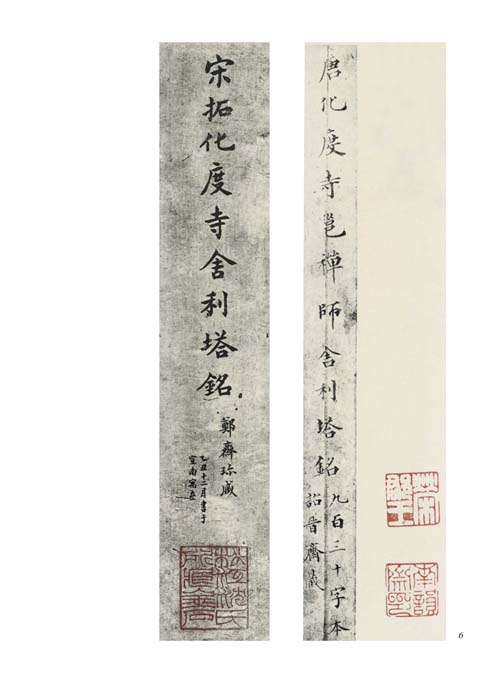 唐化度寺邕禪師舍利塔銘九百三十字本
詒晉齋藏
榮郡王
南韻齋印
宋拓化度寺舍利塔銘
鄭齋珍藏
乙丑十二月書于
宣南寓
6